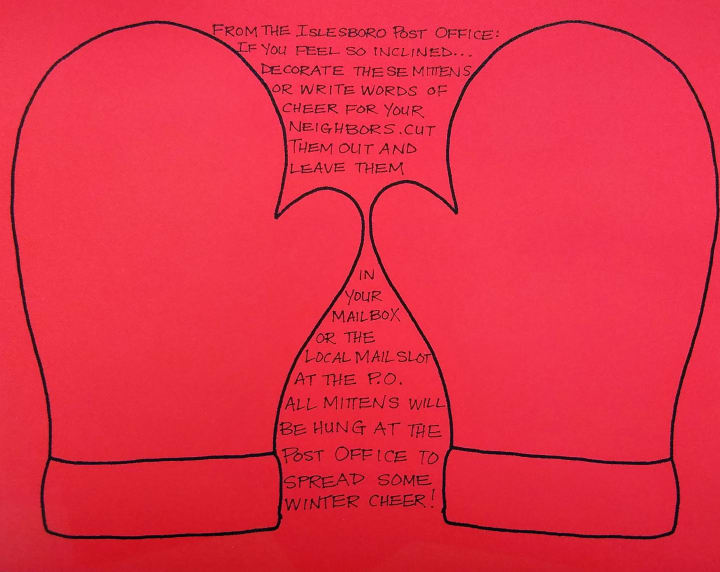 FROM THE ISLESBORO POST OFFICE:
IF YOU FEEL SO INCLINED...
DECORATE THESE MITTENS
OR WRITE WORDS OF
CHEER FOR YOUR
NEIGHBORS. CUT
THEM OUT AND
LEAVE THEM
IN
YOUR
MAILBOX
OR THE
LOCAL MAIL SLOT
AT THE P.O.
ALL MITTENS WILL
BE HUNG AT THE
POST OFFICE TO
SPREAD SOME
WINTER CHEER!